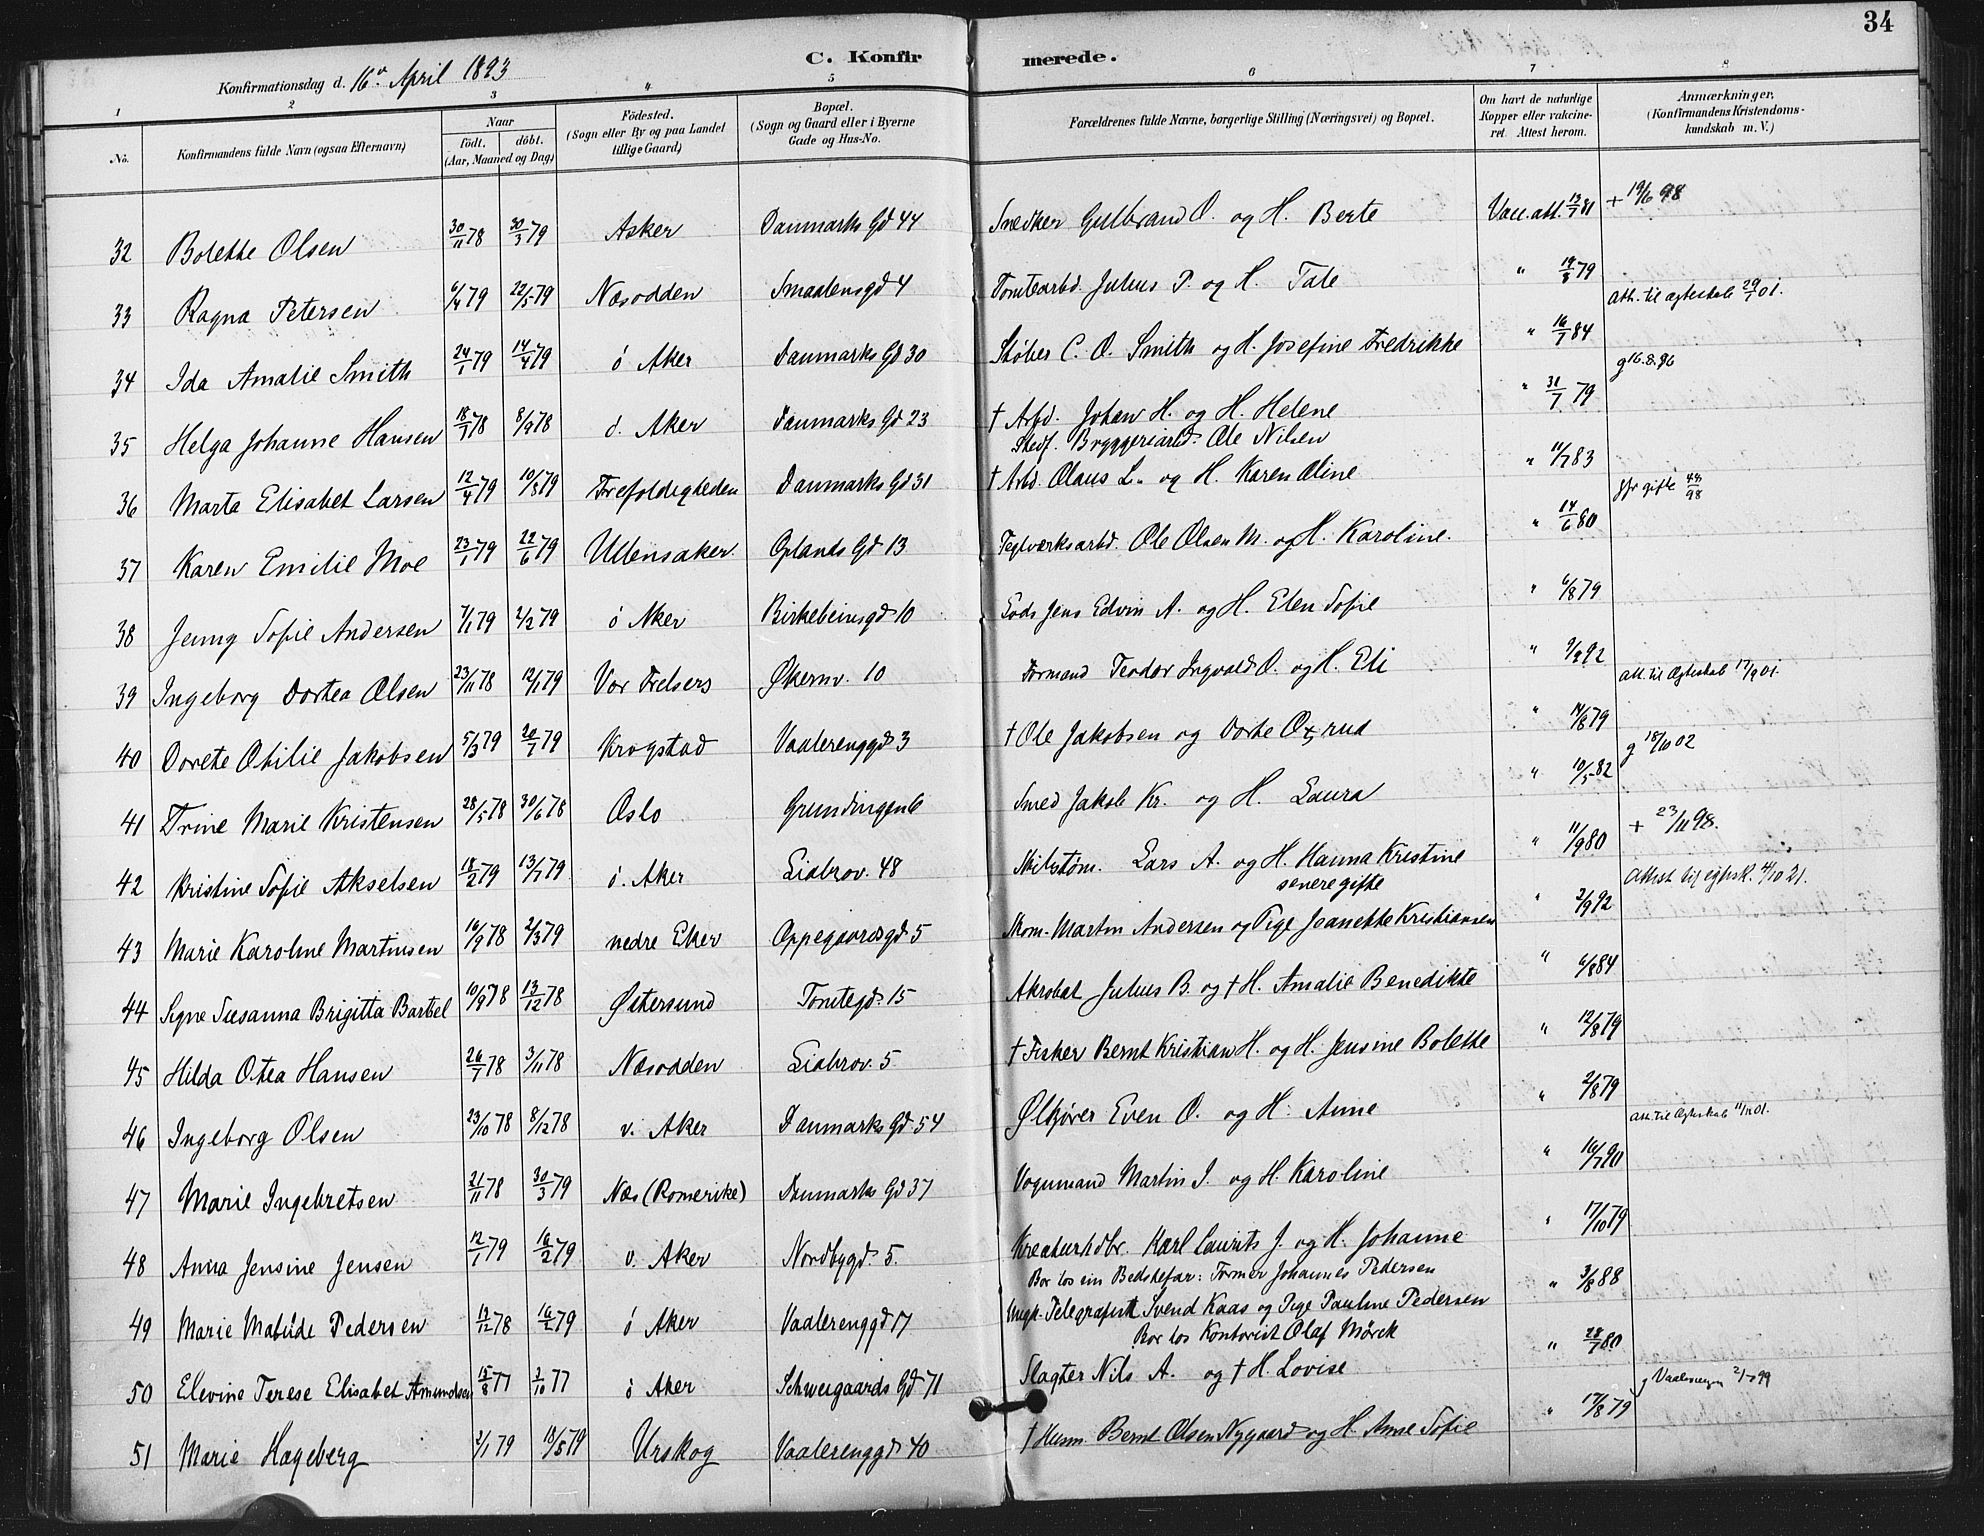 34
C. Konfirmerede.
Konfirmationsdag d. 16de April 1893
1 2 3 4 5 6 7 8
No.
Konfirmandens fulde Navn (ogsaa Efternavn)
Naar
født. døbt.
(Aar, Maaned og Dag)
Fødested.
(Sogn eller By og paa Landet
tillige Gaard)
Bopæl.
(Sogn og Gaard eller i Byerne
Gade og Hus-No.
Forældrenes fulde Navne, borgerlige Stilling (Næringsvei) og Bopæl.
Om havt de naturlige
Kopper eller vakcine-
ret. Attest herom.
Anmærkninger,
(Konfirmandens Kristendoms-
kundskab m. V.)
32 Bolette Olsen 30/11 78 30/3 79 Asker Danmarks Gd 44 Snedker Gulbrand O. og H. Berte Vacc. att. 12/7 81 + 19/6 98
33 Ragna Petersen 6/4 79 22/5 79 Næsodden Smaalensgd 4 Tomtearbd. Julius P. og H. Tale " 19/8 79 Att. til ægteskab 29/1 01.
34 Ida Amalie Smith 24/1 79 14/4 79 ö Aker Danmarks Gd 30 Støber C. O. Smith og H. Josefine Fredrikke " 16/7 84 g 16.8.96
35 Helga Johanne Hansen 18/7 78 8/9 78 ö. Aker Danmarks Gd 23 † Arbd. Johan H. og H. Helene " 31/7 79
Stedf. Bryggeriarbd. Ole Nilsen
36 Marta Elisabet Larsen 12/4 79 10/8 79 Trefoldigheden Danmarks Gd 31 † Arbd. Olaus L. og H. Karen Oline " 11/7 83
37 Karen Emilie Moe 23/1 79 22/6 79 Ullensaker Oplands Gd 13 Teglværksarbd. Ole Olsen M. og H. Karoline. " 14/6 80
38 Jenny Sofie Andersen 7/1 79 2/2 79 ö Aker Birkebeinsgd 10 Lods Jens Edvin A. og H. Elen Sofie " 6/8 79
39 Ingeborg Dortea Olsen 23/11 78 12/1 79 Vor Frelsers Økernv. 10 Formand Teodor Ingvald O. og H. Eli " 9/9 92 Att. til Ægteskab 17/9 01.
40 Dorete Otilie Jakobsen 5/3 79 20/7 79 Krogstad Vaalerenggd 3 † Ole Jakobsen og Dorte " 14/8 79
41 Trine Marie Kristensen 28/5 78 30/6 78 Oslo Grundingen 6 Smed Jakob Kr. og H. Laura " 10/5 82 g 18/10 02
42 Kristine Sofie Akselsen 18/2 79 13/7 79 ö. Aker Liabrov. 48 Lars A. og H. Hanna Kristine " 11/9 80 + 23/11 98.
43 Marie Karoline Martinsen 16/9 78 2/3 79 nedre Eker Oppegaardsgd 5 Skom. Martin Andersen og Pige Jeanette Kristiansen senere gifte " 2/9 92 Attest til egtesk. 4/10 21.
44 Signe Susanna Brigitta Barbel 10/9 78 13/12 78 Østersund Tomtegd. 15 Akrobat Julius B. og † H. Amalie Benedikte " 6/8 84
45 Hilda Otea Hansen 26/7 78 3/11 78 Næsodden Liabrov. 5 † Fisker Bernt Kristian H. og H. Jensine Bolette " 12/8 79
46 Ingeborg Olsen 23/10 78 8/12 78 v. Aker Danmarks Gd 54 Ølkjører Even O. og H. Anne " 2/8 79
47 Marie Ingebretsen 21/11 78 30/3 79 Næs (Romerike) Danmarks Gd 37 Vognmand Martin I. og H. Karoline " 16/7 90 Att. til Ægteskab 11/10 01.
48 Anna Jensine Jensen 12/1 79 16/2 79 v. Aker Nordbygd. 5. Kreaturhdlr. Karl Laurits J. og H. Johanne " 17/10 79
Bor hos sin Bedstefar: Former Johannes Pedersen
49 Marie Matilde Pedersen 13/12 78 16/2 79 ö Aker Vaalerenggd 17 Ungk. Telegrafist Svend Kaas og Pige Pauline Pedersen " 3/8 88
Bor hos Kontorist Olaf Mörck
50 Elevine Terese Elisabet Amundsen 15/8 77 2/10 77 ö Aker Schweigaards Gd 71 Slagter Nils A. og † H. Lovise " 28/7 80
51 Marie Hageberg 2/1 79 18/5 79 Urskog Vaalerenggd 40 † Husm. Bernt Olsen Nygaard og H. Anne Sofie " 17/8 79